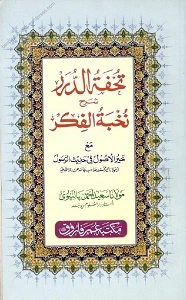 تحفة الدرر
شرح
نخبة الفكر
مع
خیر الاصول فی حدیث الرسول
مولانا سعید احمد پالنپوری
مکتبہ عمر فاروق